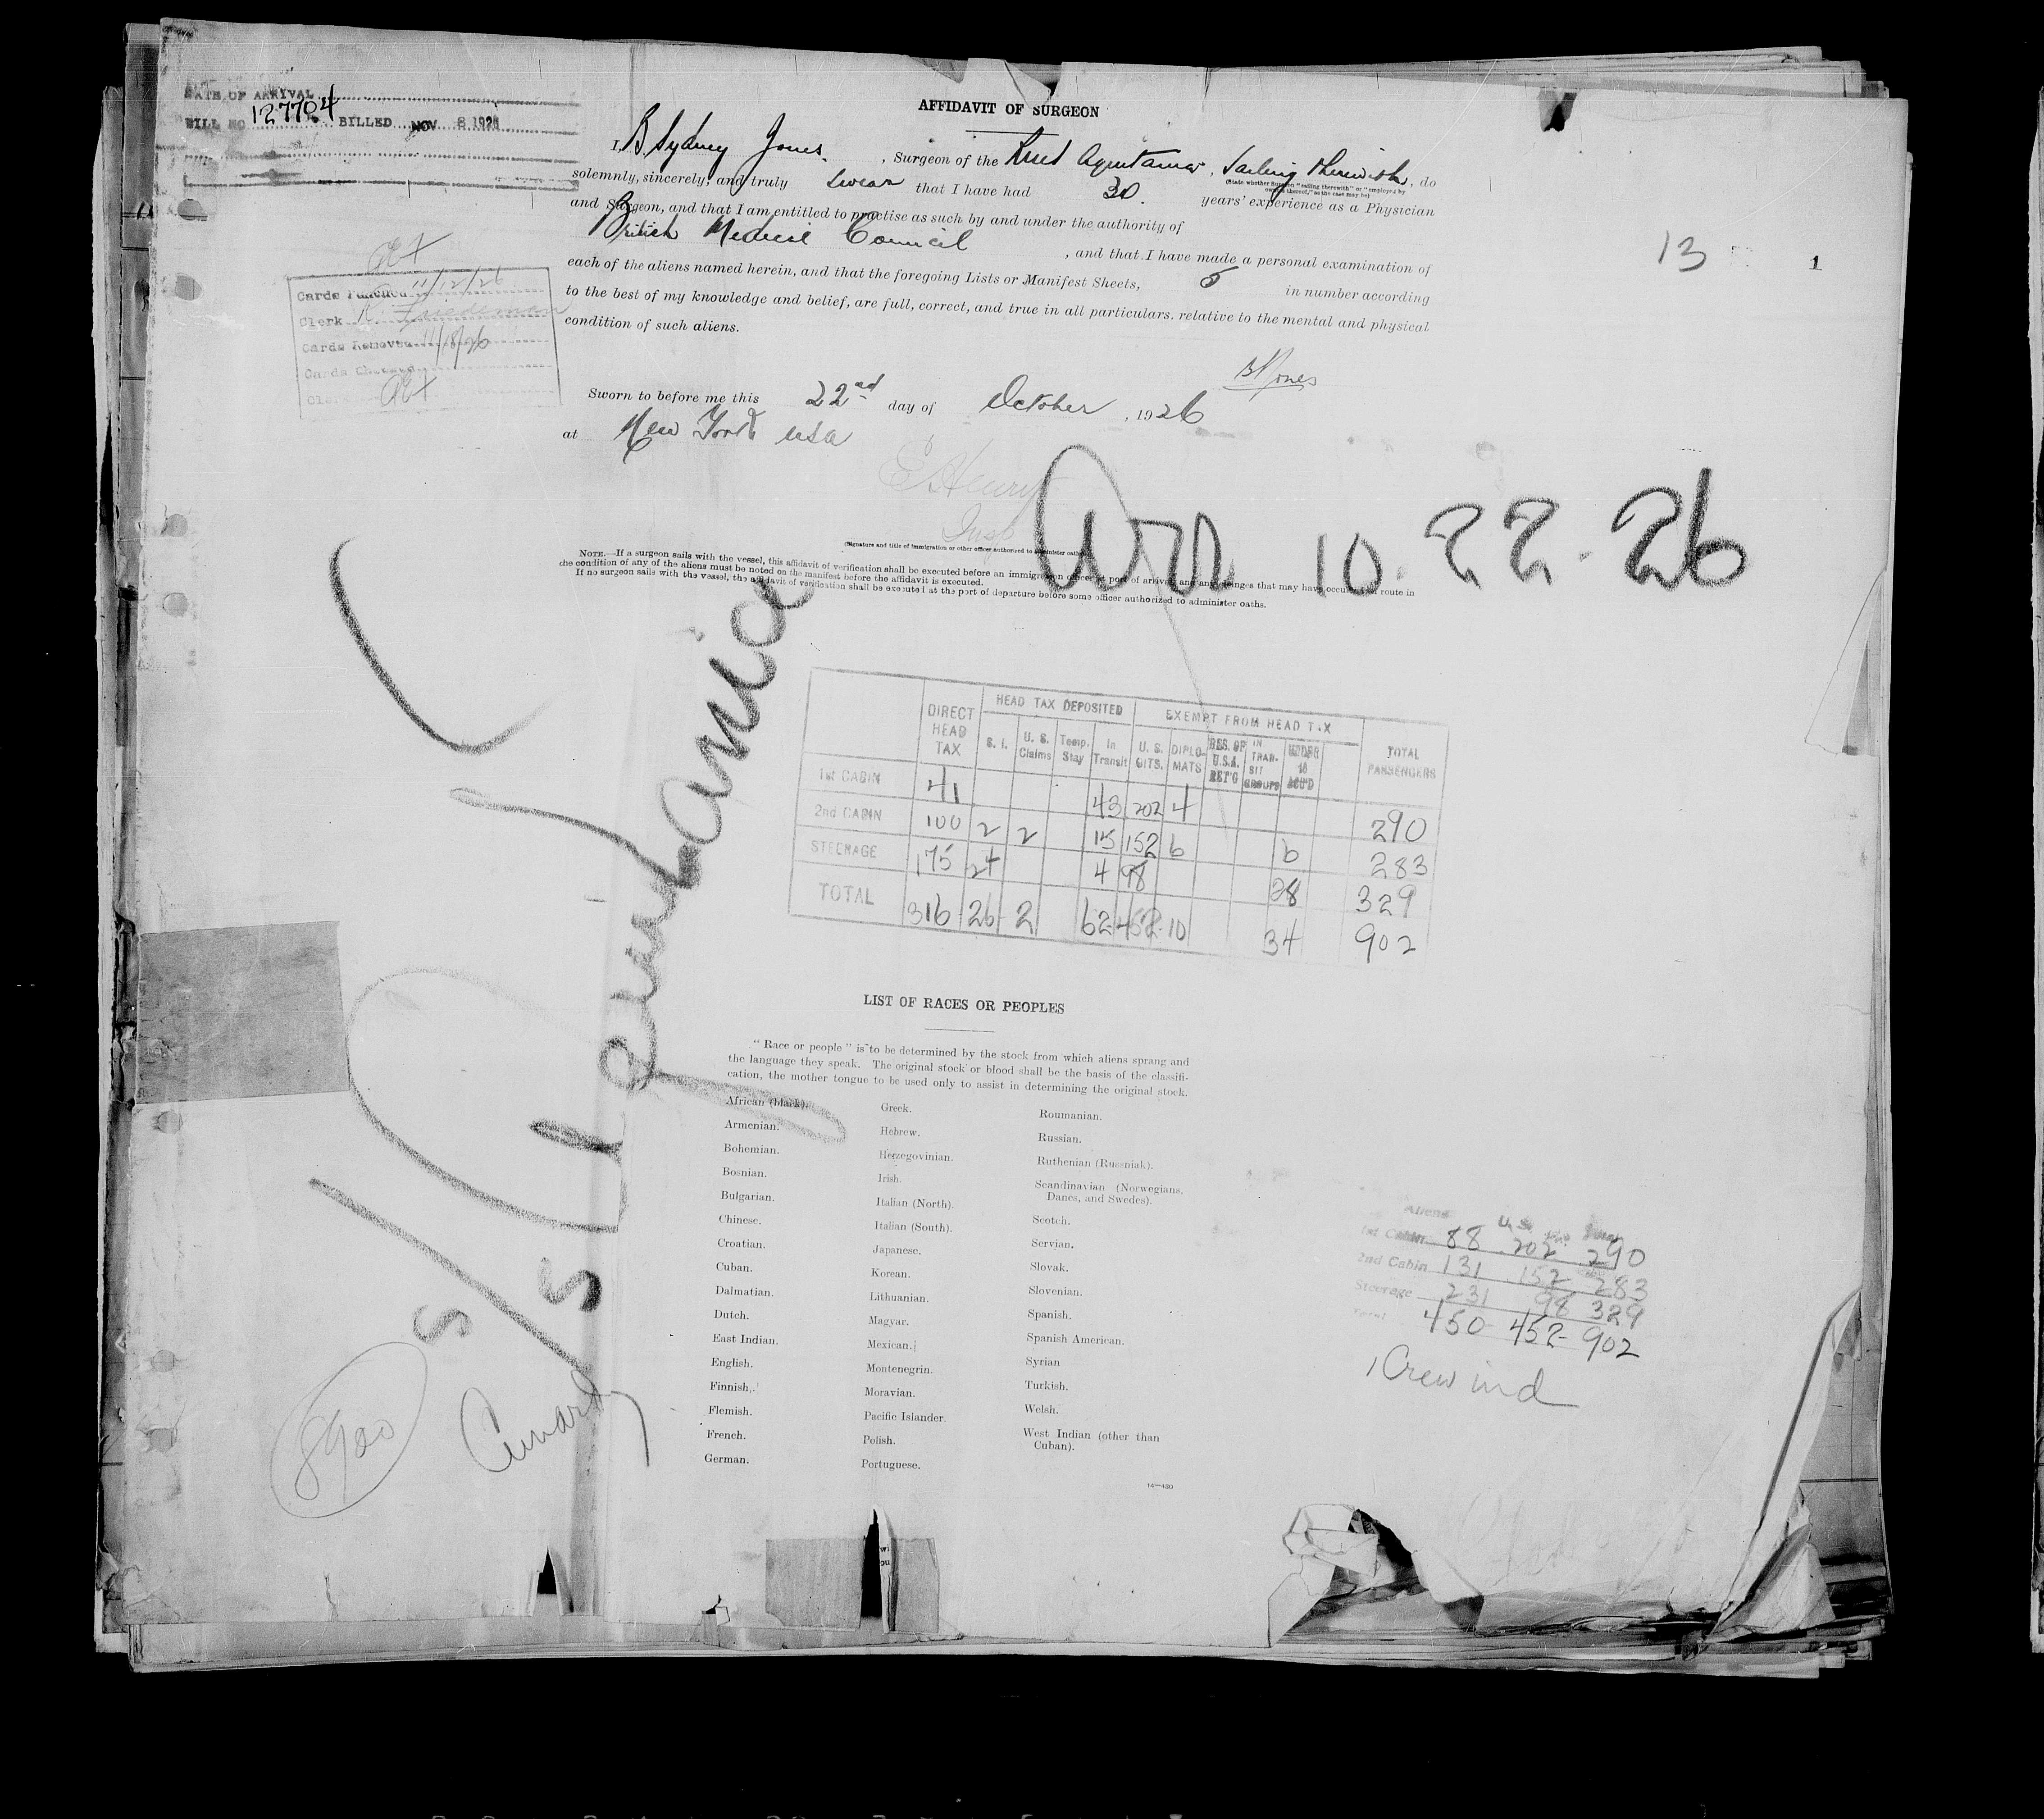 DATE OF ARRIVAL
BILL NO 127784 BILLED NOV 8 1926
AFFIDAVIT OF SURGEON
I, B Sydney Jones, Surgeon of the RMS Aquitania, Sailing therewith, do
(State whether Surgeon "sailing therewith" or "employed by
owners thereof," as the case may be)
solemnly, sincerely, and truly swear that I have had 30. years' experience as a Physician
and Surgeon, and that I am entitled to practise as such by and under the authority of
British Medical Council, and that I have made a personal examination of
each of the aliens named herein, and that the foregoing Lists or Manifest Sheets, in number according
to the best of my knowledge and belief, are full, correct, and true in all particulars, relative to the mental and physical
condition of such aliens.
13 1
Cards Punched 11/12/26
Clerk Friedeman
Cards Removed 11/18/26
Cards Checked
Clerk
B S Jones
Sworn to before me this 22nd day of October, 1926
at New York USA
E Henry
Insp
(Signature and title of immigration or other officer authorized to administer oaths)
Arr 10.22.26
NOTE.—If a surgeon sails with the vessel, this affidavit of verification shall be executed before an immigration officer at port of arrival and any changes that may have occurred en route in
the condition of any of the aliens must be noted on the manifest before the affidavit is executed.
If no surgeon sails with the vessel, the affidavit of verification shall be executed at the port of departure before some officer authorized to administer oaths.
DIRECT HEAD TAX HEAD TAX DEPOSITED EXEMPT FROM HEAD TAX TOTAL PASSENGERS
S. I. U. S. Claims Temp. Stay In Transit U. S. CITS. DIPLOMATS RES. OF U.S.A. RET'G IN TRANSIT GROUPS UNDER 16 ACC'D
1st CABIN 41 43 202 4 290
2nd CABIN 100 2 2 15 152 6 6 283
STEERAGE 175 24 4 98 28 329
TOTAL 316 26 2 62 452 10 34 902
S/S Aquitania
S
Cunard
8900
LIST OF RACES OR PEOPLES
"Race or people" is to be determined by the stock from which aliens sprang and
the language they speak. The original stock or blood shall be the basis of the classifi-
cation, the mother tongue to be used only to assist in determining the original stock.
African (black).
Armenian.
Bohemian.
Bosnian.
Bulgarian.
Chinese.
Croatian.
Cuban.
Dalmatian.
Dutch.
East Indian.
English.
Finnish.
Flemish.
French.
German.
Greek.
Hebrew.
Herzegovinian.
Irish.
Italian (North).
Italian (South).
Japanese.
Korean.
Lithuanian.
Magyar.
Mexican.
Montenegrin.
Moravian.
Pacific Islander.
Polish.
Portuguese.
Roumanian.
Russian.
Ruthenian (Russniak).
Scandinavian (Norwegians,
Danes, and Swedes).
Scotch.
Servian.
Slovak.
Slovenian.
Spanish.
Spanish American.
Syrian
Turkish.
Welsh.
West Indian (other than
Cuban).
14—430
Aliens U. S. Total
1st Cabin 88 202 290
2nd Cabin 131 152 283
Steerage 231 98 329
Total 450 452 902
1 Crew ind